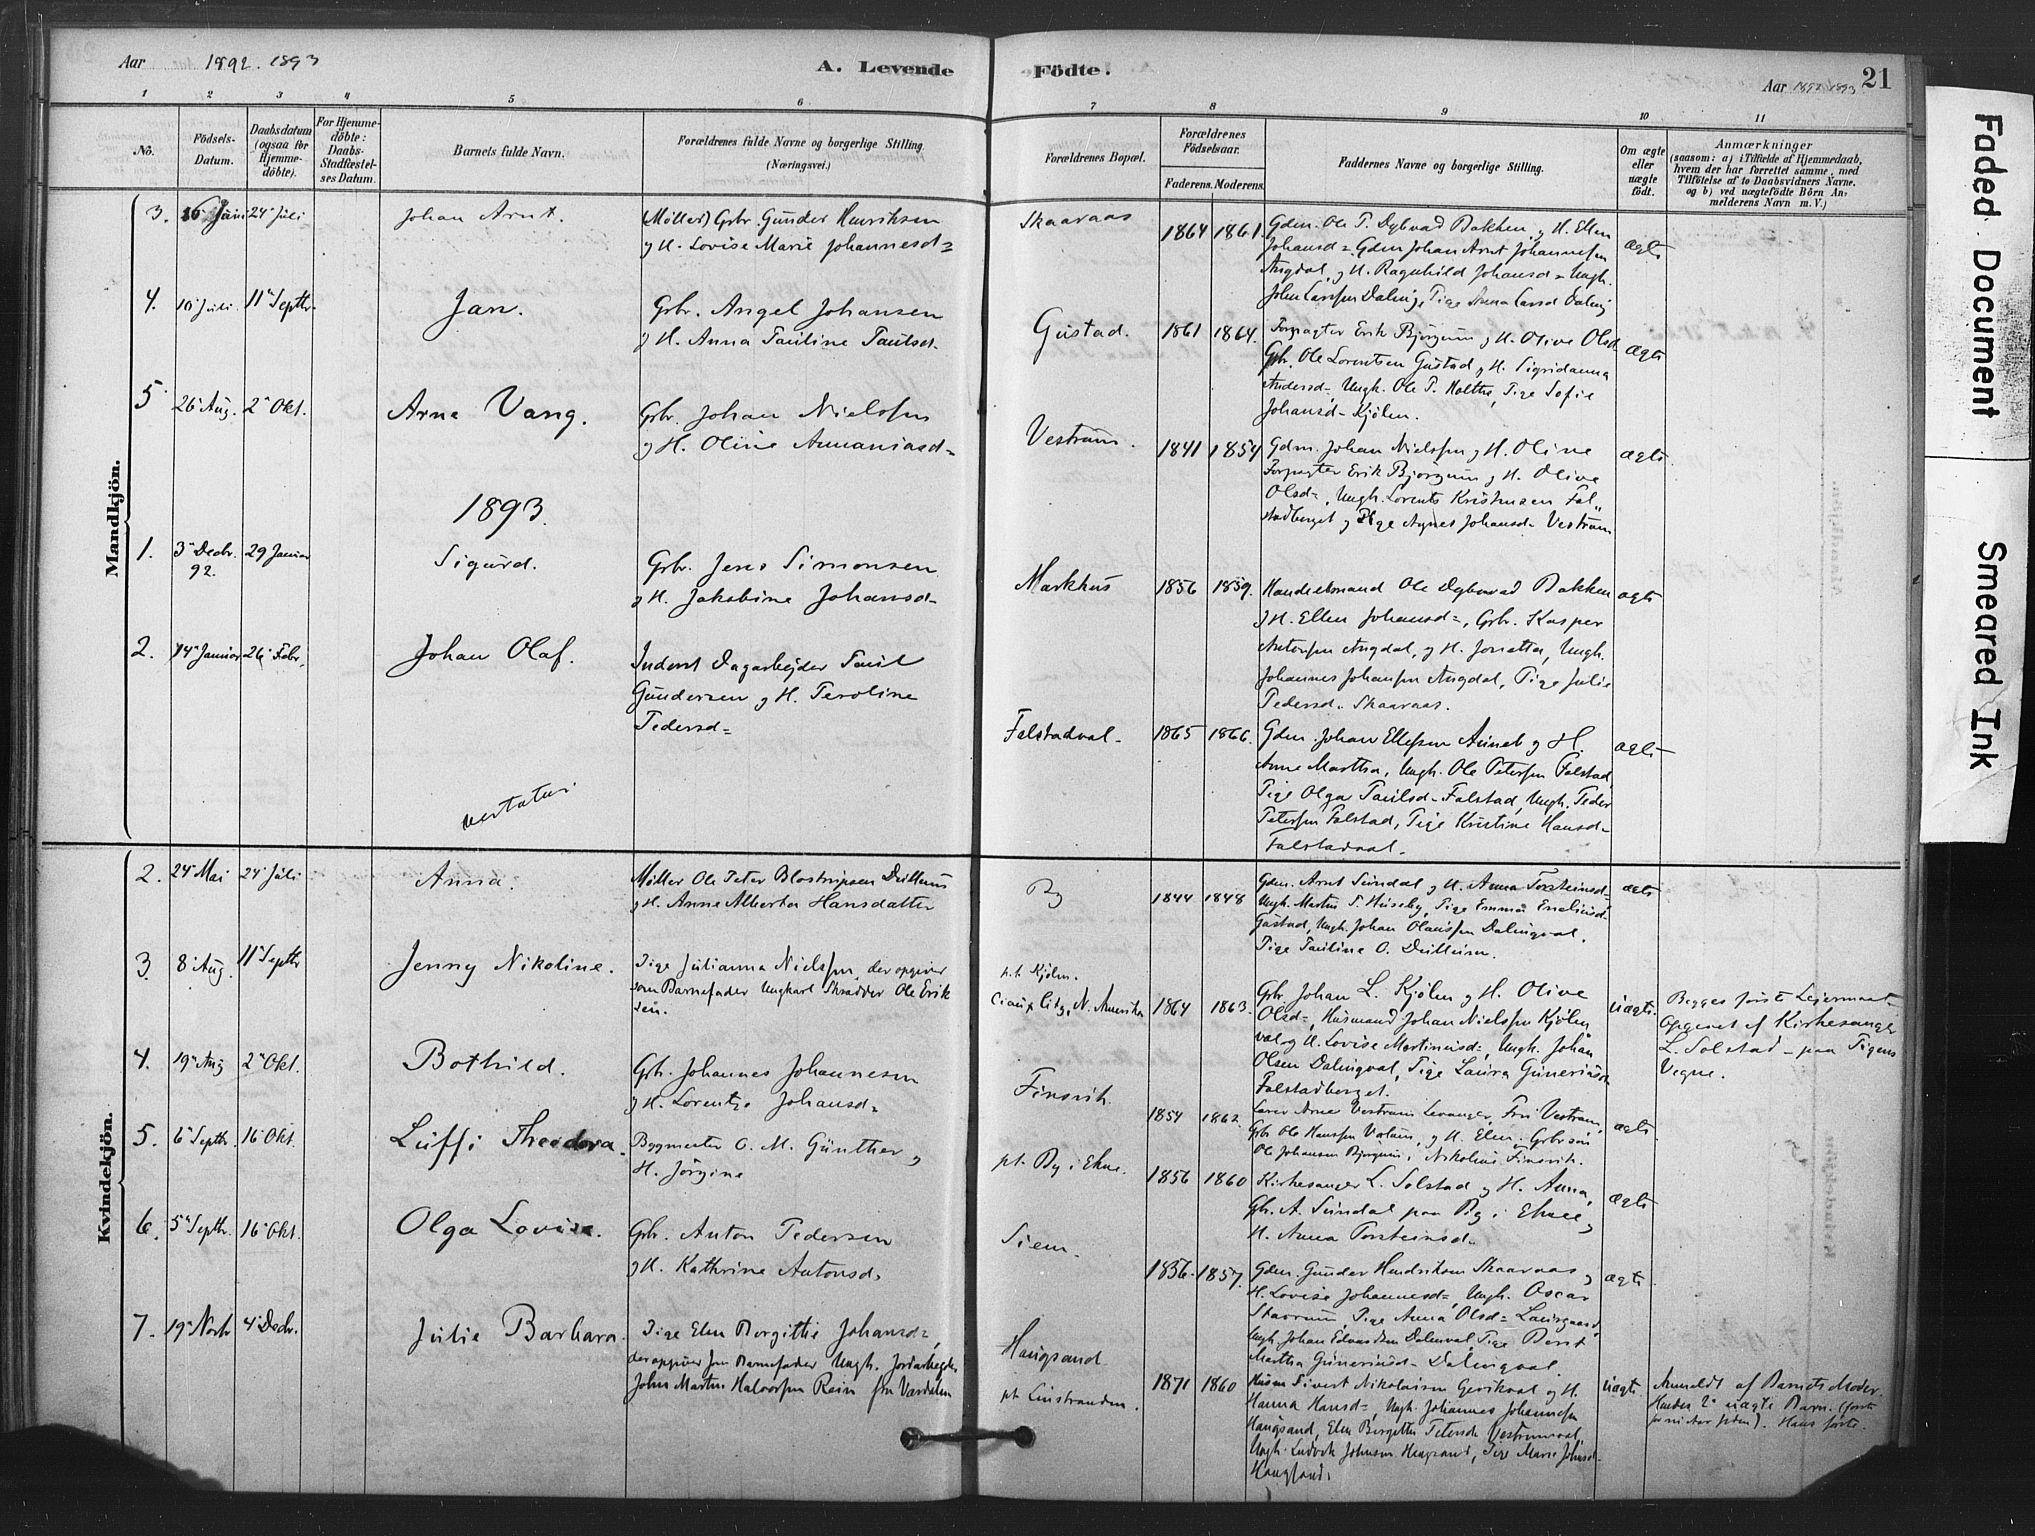 Aar 1892. 1893
A. Levende Födte.
Aar 1892 1893 21
1 2 3 4 5 6 7 8 9 10 11
No.
Födsels-Datum.
Daabsdatum (ogsaa for Hjemme-döbte).
For Hjemme-döbte: Daabs-Stadfæstel-ses Datum.
Barnets fulde Navn.
Forældrenes fulde Navne og borgerlige Stilling.
(Næringsvei.)
Forældrenes Bopæl.
Forældrenes Födselsaar.
Faderens. Moderens.
Faddernes Navne og borgerlige Stilling.
Om ægte eller uægte födt.
Anmærkninger
(saasom: a) i Tilfælde af Hjemmedaab,
hvem der har forrettet samme, med
Tilföielse af to Daabsvidners Navne.
og b) ved uægtefödte Börn An-
melderens Navn m. V.)
Mandkjön.
3. 16 Juni 24 Juli Johan Arnt. (Møller) Grbr Gunder Henriksen
og H. Lovise Marie Johannesd=
Skaaraas 1864 1861.
Gdm. Ole P. Dybvad Bakken, og H. Ellen
Johansd= Gdm Johan Arnt Johannessen
Angdal, og H. Ragnhild Johansd= Ungk.
John Larssen Daling, Pige Anna Larsd Daling
ægte
4. 10 Juli 11 Septbr. Jan. Grbr. Angel Johansen
og H. Anna Pauline Paulsd.
Gustad. 1861 1864.
Forpagter Erik Bjørgum og H. Olive Olsd
Grb. Ole Lorentsen Gustad og H. Sigridanna
Andersd= Ungk. Ole P. Holthe, Pige Sofie
Johansd= Kjölen.
ægte
5 26 Aug. 2 Okt. Arne Vang. Grbr. Johan Nielssen
og H. Oline Annaniasd=
Vestrum. 1841 1854
Gdm. Johan Nielssen og H. Oline
Forpagter Erik Bjørgum og H. Olive
Olsd=, Ungk. Lorents Kristensen Fal"
stadberget og Pige Agnes Johansd= Vestrum
ægte
1893.
1. 3 Decbr. 92. 29 Januar Sigurd. Grbr. Jens Simonsen
og H. Jakobine Johansd=
Markhus 1856 1859.
Handelsmand Ole Dybvad Bakken
og H. Ellen Johansd=, Grbr. Kasper
Antonsen Angdal, og H. Jonetta, Ungk.
Johannes Johansen Angdal, Pige Julie
Pedersd. Skaaraas.
ægte
2. 14 Januar 26 Febr. Johan Olaf. Inderst Dagarbejder Paul
Gundersen og H. Peroline
Pedersd=
Falstadval. 1865 1866.
Gdm. Johan Ellefsen Auneb og H.
Anne Martha, Ungk. Ole Petersen Falstad,
Pige Olga Paulsd= Falstad, Ungk. Peder
Petersen Falstad, Pige Kristine Hansd=
Falstadval.
ægte
vertatur
Kvindekjön.
2. 24 Mai 24 Juli Anna. Møller Ole Peter Duillum
og H. Anne Alberta Hansdatter
By 1844 1848
Gdm. Arnt Sundal og H. Anna Torsteinsd=
Ungk. Martin P. Huseby, Pige Emma
Gustad, Ungk. Johan Olaussen Dalingval,
Pige Pauline O. Duillum.
ægte
3. 8 Aug. 11 Septbr Jenny Nikoline. Pige Julianna Nielssen, der opgiver
som Barnefader Ungkarl Skrædder Ole Erik
sen.
p.t. Kjölen.
Ciaux City, N. Amerika 1864 1863.
Grbr. Johan L. Kjölen og H. Olive
Olsd=, Husmand Johan Nielssen Kjölen
val og H. Lovise Martinusd=, Ungk. Johan
Olsen Dalingval, Pige Laura Guneriusd
Falstadberget.
uægte.
Begges første Leiermaal
Opgivet af Kirkesanger
L. Solstad paa Pigens
Vegne.
4. 19 Aug 2 Okt. Bothild. Grb. Johannes Johannesen
og H. Lorentze Johansd=
Finsvik. 1854 1862.
Lærer Arne Vestrum Levanger, Fru Vestrum,
Grbr Ole Hanssen Valum, og H. Elen. Grbrsøn
Ole Johansen Bjørgum, Nikoline Finsvik.
ægte.
5. 6 Septbr. 16 Okt. Luffi Theodora. Bygmester O. M. Günther og
H. Jörgine
pt. By i Ekne. 1856 1860
Kirkesanger L. Solstad og H. Anna,
Grb. A. Sundal paa By i Ekne og
H. Anna Torsteinsd.
ægte
6. 5 Septbr. 16 Okt. Olga Lovise. Grbr. Anton Pedersen
og H. Kathrine Antonsd.
Siem. 1856. 1857.
Gdm. Gunder Hendriksen Skaaraas og
H. Lovise Johannesd=, Ungk. Oscar
Skavrum, Pige Anna Olsd=
Ungk. Johan Edvardsen Dalenval, Pige Beret
Martha Guneriusd= Dalingval
ægte
7. 19 Novbr 4 Decbr. Julie Barbara. Pige Elen Bergithe Johansd=,
der opgiver som Barnefader Ungk. Jordarbejder
John Martin Halvorsen Rein fra Værdalen
Haugsand
pt. Linstranden. 1871 1860
Husm Sivert Nikolaisen Gevikval og H.
Hanna Hansd=, Ungk. Johannes Johannessen
Haugsand, Elen Bergitte Petersd= Vestrumval,
Ungk Ludvik Johnsen Haugsand, Pige Marie Johnsd=
Haugsand.
uægte
Anmeldt af Barnets Moder
Hendes 2 uægte Barn. (første
for ni Aar siden). Hans første.
Faded Document
Smeared Ink